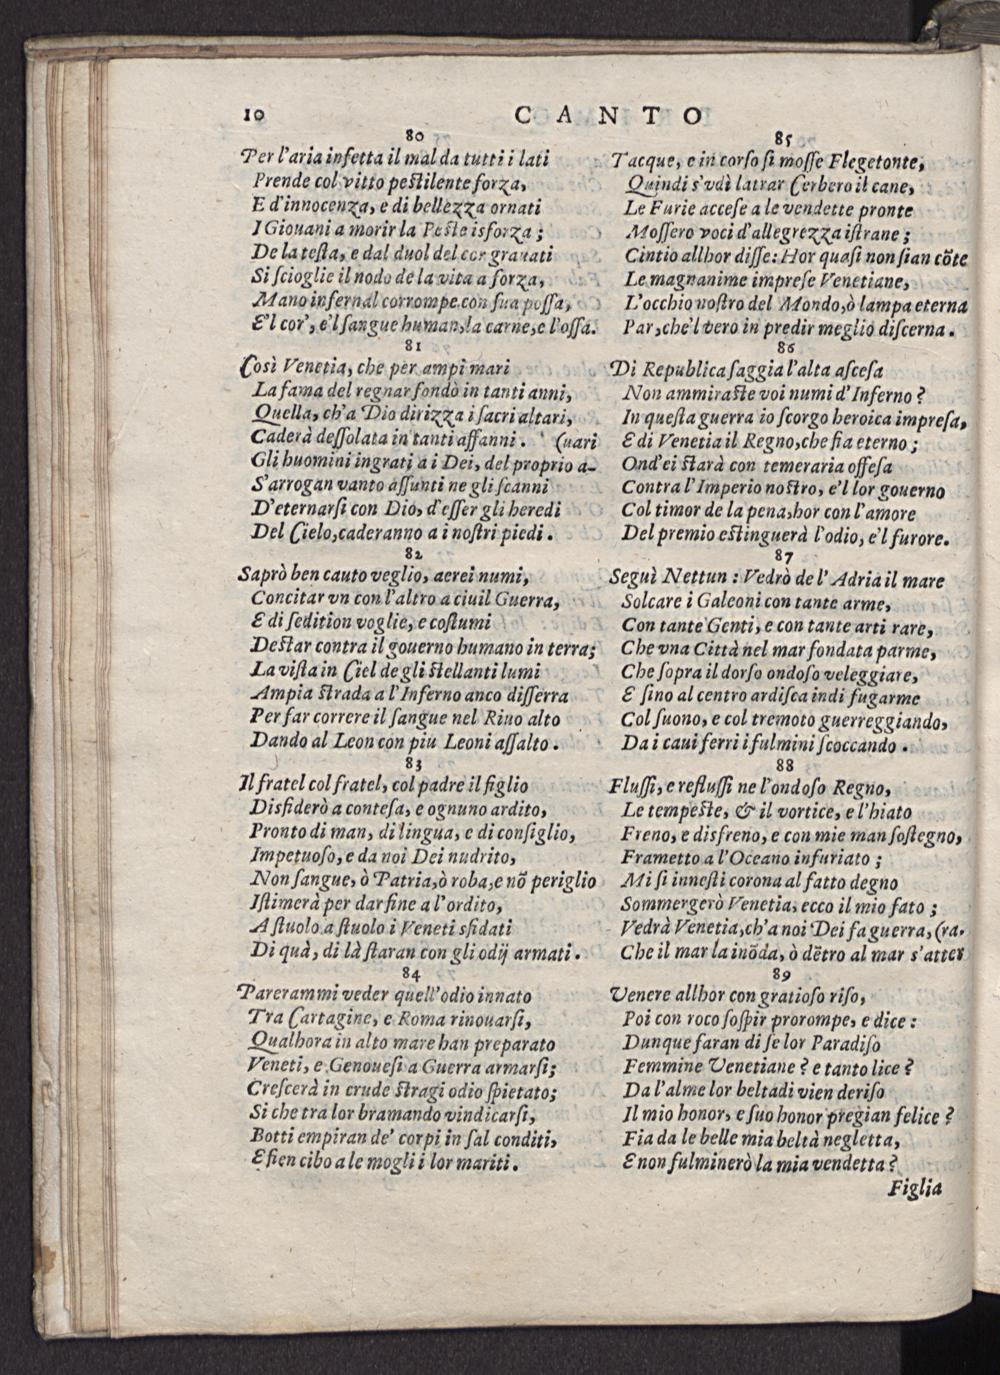 10
CANTO
80
Per l'aria infetta il mal da tutti i lati
Prende col vitto pestilente forza,
E d'innocenza, e di bellezza ornati
I Giouani a morir la Peste isforza;
De la testa, e dal duol del cor grauati
Si scioglie il nodo de la vita a forza,
Mano infernal corrompe con sua possa,
E'l cor', e'l sangue human, la carne, e l'ossa.
81
Così Venetia, che per ampi mari
La fama del regnar fondò in tanti anni,
Quella, ch'a Dio dirizza i sacri altari,
Caderà dessolata in tanti affanni. (uari
Gli huomini ingrati a i Dei, del proprio a-
S'arrogan vanto assunti ne gli scanni
D'eternarsi con Dio, d'esser gli heredi
Del Cielo, caderanno a i nostri piedi.
82
Saprò ben cauto veglio, aerei numi,
Concitar vn con l'altro a ciuil Guerra,
E di sedition voglie, e costumi
Destar contra il gouerno humano in terra;
La vista in Ciel de gli stellanti lumi
Ampia strada a l'Inferno anco disserra
Per far correre il sangue nel Riuo alto
Dando al Leon con piu Leoni assalto.
83
Il fratel col fratel, col padre il figlio
Disfiderò a contesa, e ognuno ardito,
Pronto di man, di lingua, e di consiglio,
Impetuoso, e da noi Dei nudrito,
Non sangue, ò Patria, ò roba, e nõ periglio
Istimerà per dar fine a l'ordito,
A stuolo a stuolo i Veneti sfidati
Di quà, di là staran con gli odij armati.
84
Parerammi veder quell'odio innato
Tra Cartagine, e Roma rinouarsi,
Qualhora in alto mare han preparato
Veneti, e Genouesi a Guerra armarsi;
Crescerà in crude stragi odio spietato;
Si che tra lor bramando vindicarsi,
Botti empiran de' corpi in sal conditi,
E fien cibo a le mogli i lor mariti.
85
Tacque, e in corso si mosse Flegetonte,
Quindi s'vdì latrar Cerbero il cane,
Le Furie accese a le vendette pronte
Mossero voci d'allegrezza istrane;
Cintio allhor disse: Hor quasi non sian cõte
Le magnanime imprese Venetiane,
L'occhio nostro del Mondo, ò lampa eterna
Par, che'l vero in predir meglio discerna.
86
Di Republica saggia l'alta ascesa
Non ammiraste voi numi d'Inferno?
In questa guerra io scorgo heroica impresa,
E di Venetia il Regno, che fia eterno;
Ond'ei starà con temeraria offesa
Contra l'Imperio nostro, e'l lor gouerno
Col timor de la pena, hor con l'amore
Del premio estinguerà l'odio, e'l furore.
87
Seguì Nettun: Vedrò de l'Adria il mare
Solcare i Galeoni con tante arme,
Con tante Genti, e con tante arti rare,
Che vna Città nel mar fondata parme,
Che sopra il dorso ondoso veleggiare,
E sino al centro ardisca indi fugarme
Col suono, e col tremoto guerreggiando,
Da i caui ferri i fulmini scoccando.
88
Flussi, e reflussi ne l'ondoso Regno,
Le tempeste, & il vortice, e l'hiato
Freno, e disfreno, e con mie man sostegno,
Frametto a l'Oceano infuriato;
Mi si innesti corona al fatto degno
Sommergerò Venetia, ecco il mio fato;
Vedrà Venetia, ch'a noi Dei fa guerra, (ra.
Che il mar la inõda, ò dẽtro al mar s'atter
89
Venere allhor con gratioso riso,
Poi con roco sospir prorompe, e dice:
Dunque faran di se lor Paradiso
Femmine Venetiane? e tanto lice?
Da l'alme lor beltadi vien deriso
Il mio honor, e suo honor pregian felice?
Fia da le belle mia beltà negletta,
E non fulminerò la mia vendetta?
Figlia